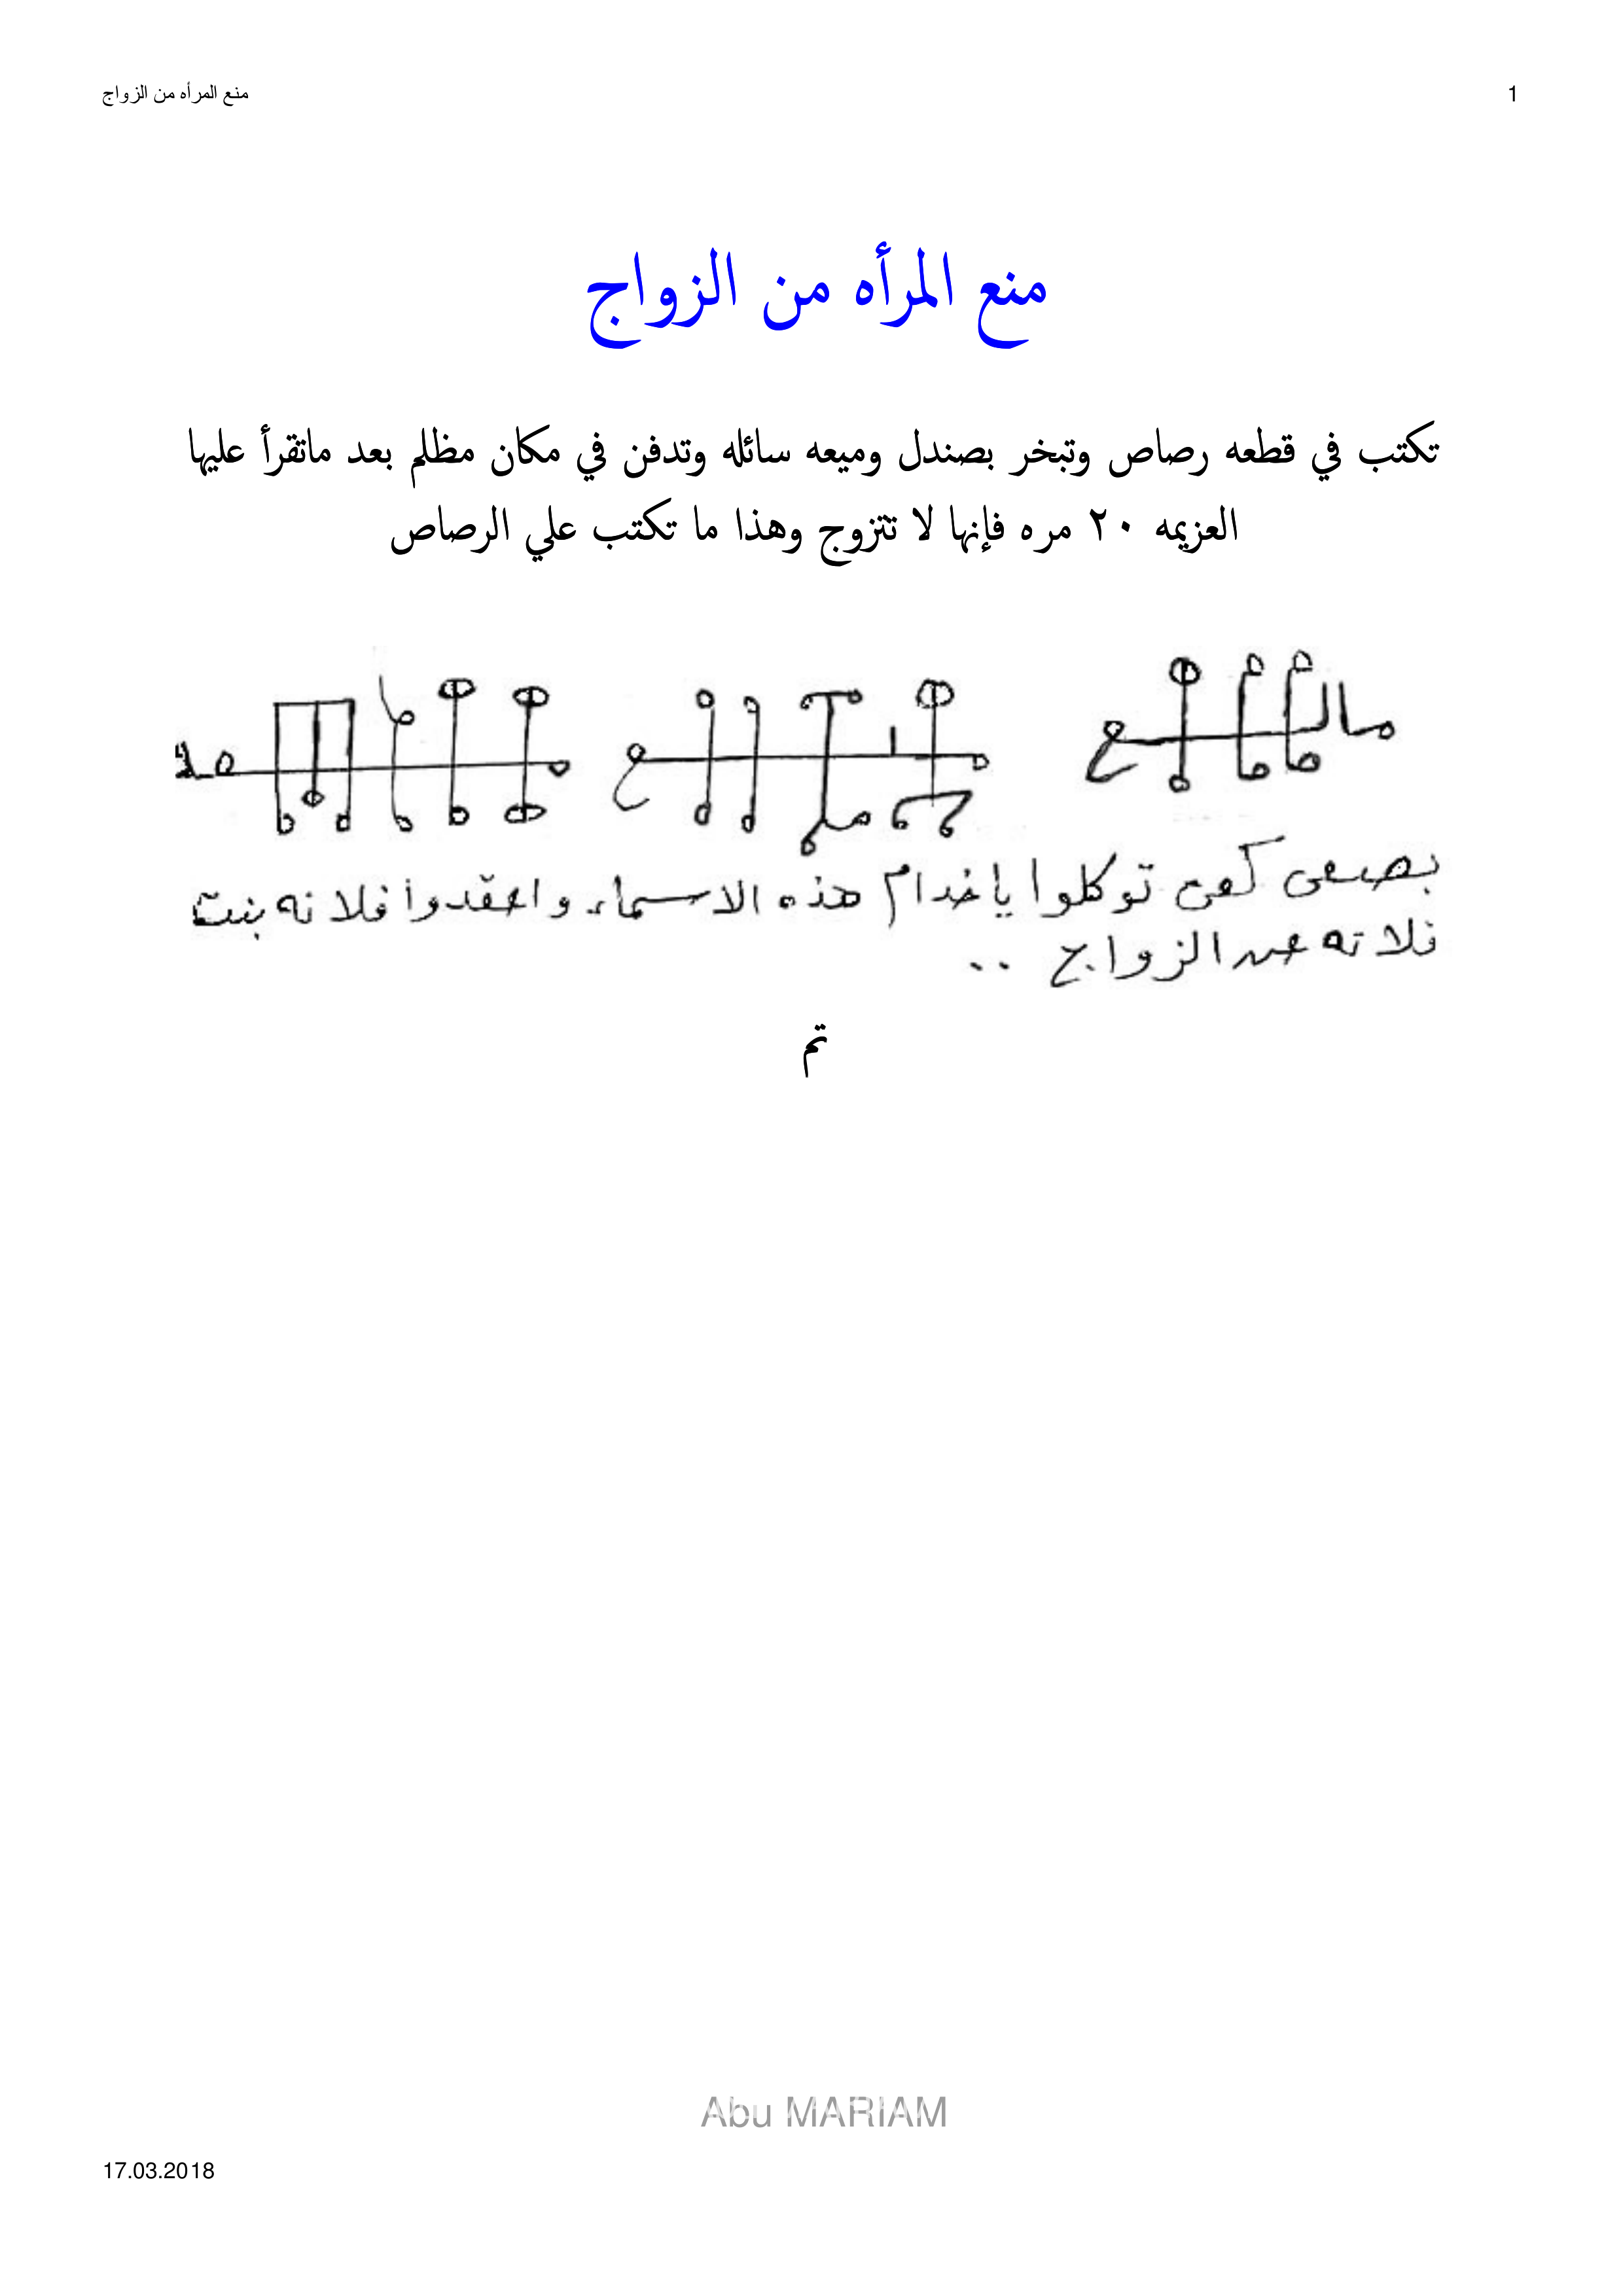 منع المرأه من الزواج
1
منع المرأه من الزواج
تكتب في قطعه رصاص وتبخر بصندل وميعه سائله وتدفن في مكان مظلم بعد ماتقرأ عليها
العزيمه ٢٠ مره فإنها لا تتزوج وهذا ما تكتب علي الرصاص
توكلوا ياخدام هذه الاسماء واعقدوا فلانه بنت
فلانه عن الزواج ..
تم
Abu MARIAM
17.03.2018